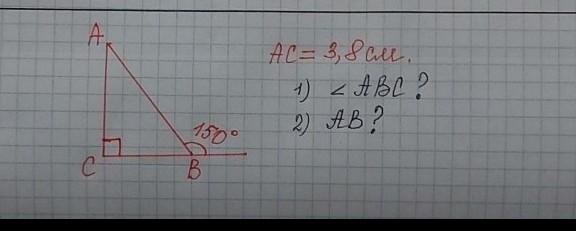 A
AC = 3,8 см.
1) < ABC ?
2) AB ?
150°
C
B